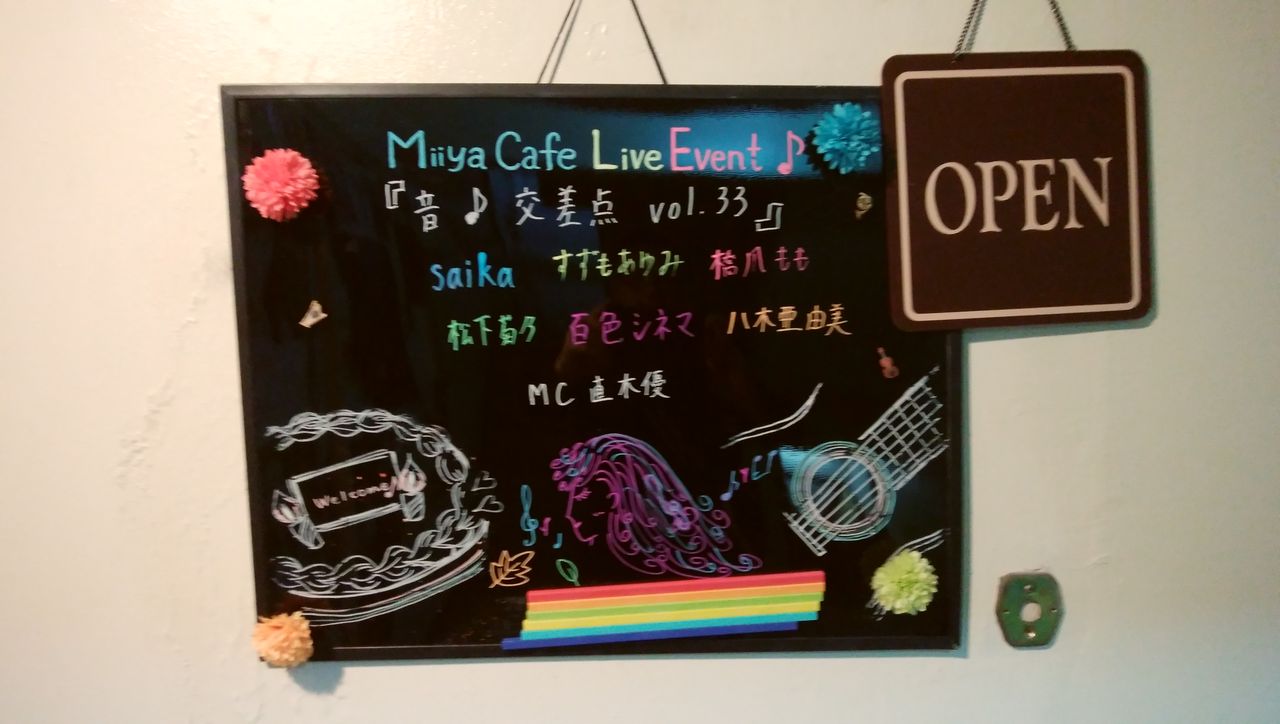 Miiya Cafe Live Event♪
『音♪交差点 vol.33』
saika すずもあゆみ 橋爪もも
松下菊乃 百色シネマ 八木亜由美
MC 直木優
Welcome♪
OPEN